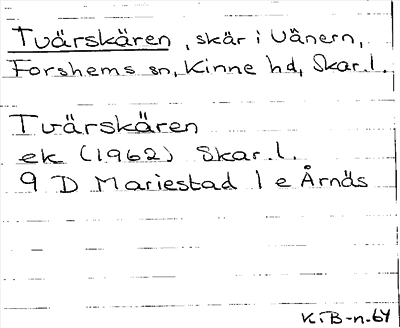 Tvärskären, skär i Vänern,
Forshems sn, Kinne hd, Skar. l.
Tvärskären
ek (1962) Skar. l.
9 D Mariestad 1 e Årnäs
KiB-n. 64